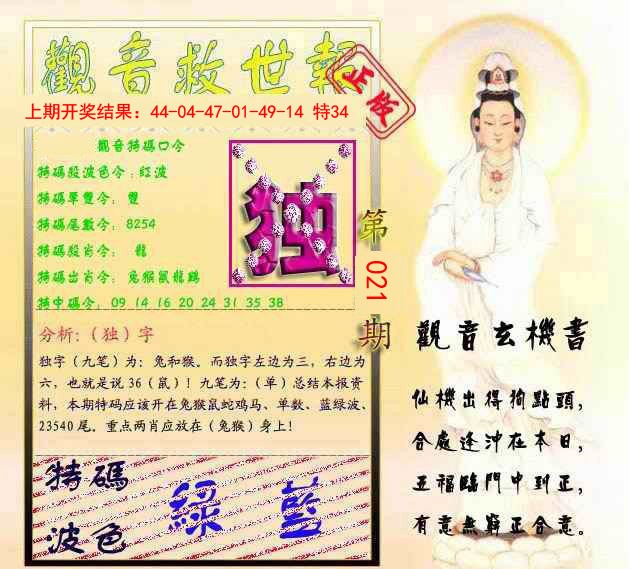 觀音救世報
正版
上期开奖结果：44-04-47-01-49-14 特34
觀音特碼口令
特碼殺波色令：紅波
特碼單雙令： 雙
特碼尾數令： 8254
特碼殺肖令： 龍
特碼出肖令： 兔猴鼠龍鷄
特中碼令： 09 14 16 20 24 31 35 38
独
第
021
期
分析:（独）字
独字（九笔）为：兔和猴。而独字左边为三，右边为
六，也就是说36（鼠）！九笔为：（单）总结本报资
料，本期特码应该开在兔猴鼠蛇鸡马、单数、蓝绿波、
23540尾。重点两肖应放在（兔猴）身上！
特碼
波色
綠 藍
觀音玄機書
仙機出得狗點頭，
合處逢沖在本日，
五福臨門中到正，
有意無辭正合意。